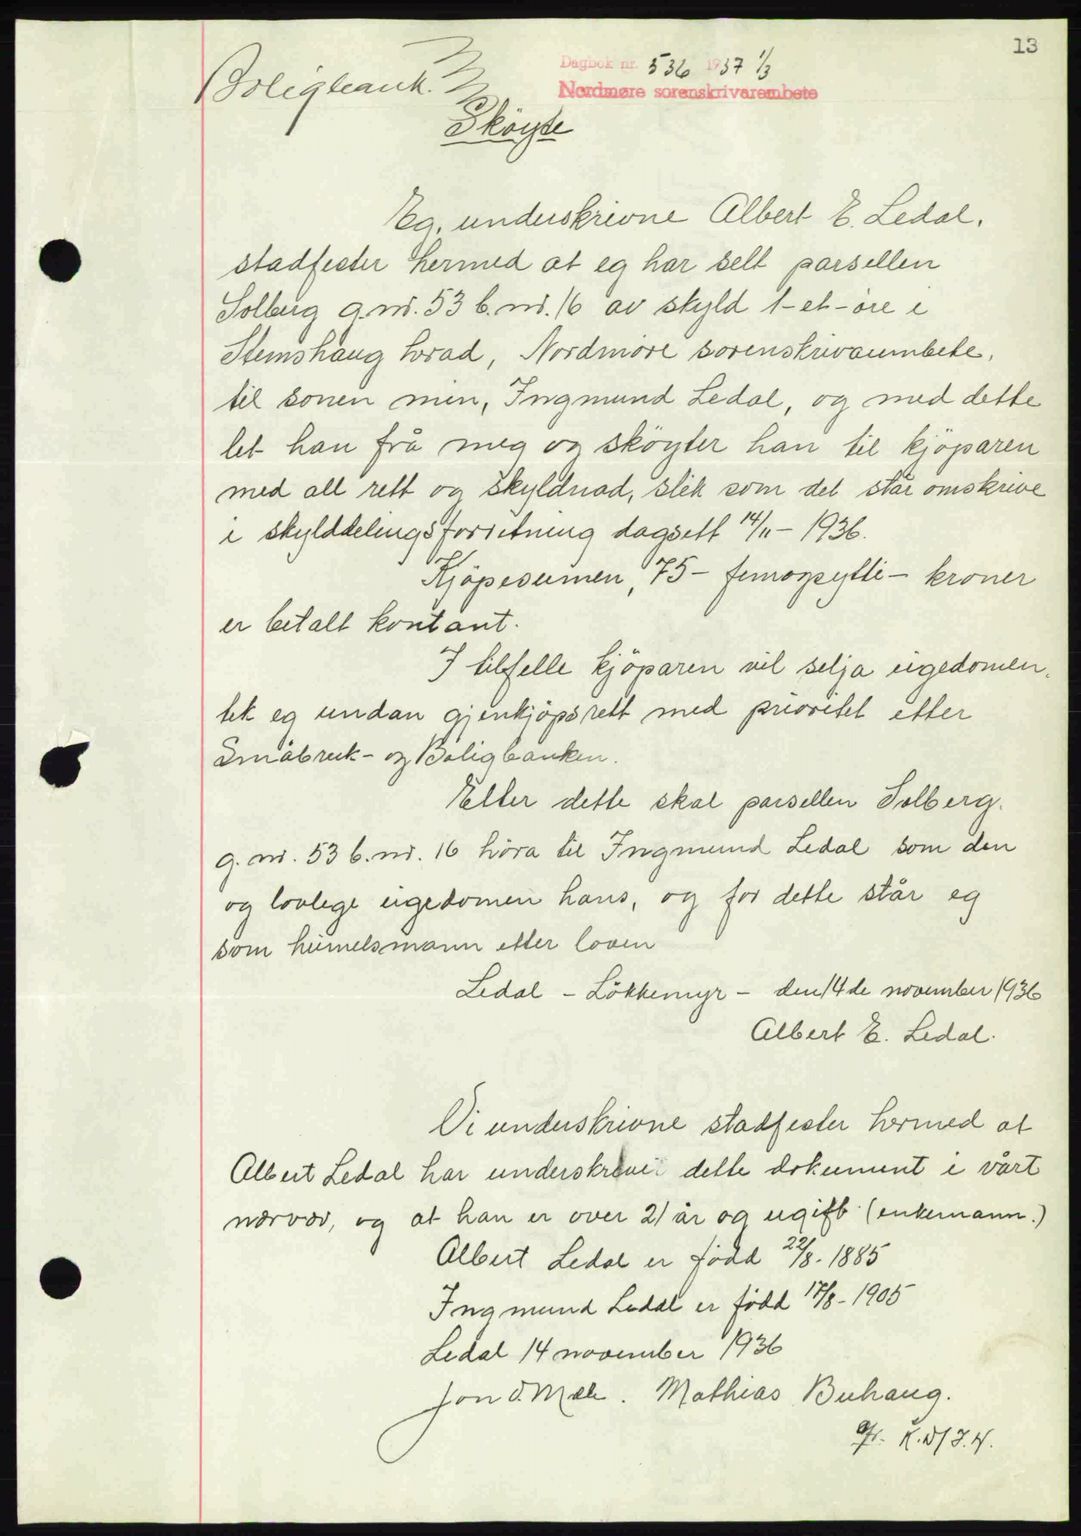 13
Dagbok nr. 536 1937 1/3
Nordmøre sorenskrivarembete
Boligbank.
Sköyte
Eg, underskrivne Albert E. Ledal,
stadfester hermed at eg har selt parsellen
Solberg g.nr. 53 b.nr. 16 av skyld 1-et-öre i
Stemshaug herad, Nordmöre sorenskrivarembete,
til sonen min, Ingmund Ledal, og med dette
let han frå meg og sköyter han til kjöparen
med all rett og skyldnad, slik som det står omskrive
i skylddelingsforretning dagsett 14/11 - 1936.
Kjöpesumen, 75 - femogsytti - kroner
er betalt kontant.
I tilfelle kjöparen vil selja eigedomen,
tek eg undan gjenkjöpsrett med prioritet etter
Småbruk- og Boligbanken.
Etter dette skal parsellen Solberg.
g.nr. 53 b.nr. 16 höra til Ingmund Ledal som den
og lovlege eigedomen hans, og for dette står eg
som heimelsmann etter loven
Ledal - Lökkemyr - den 14de november 1936
Albert E. Ledal.
Vi underskrivne stadfester hermed at
Albert Ledal har underskrive dette dokument i vårt
nærvær, og at han er over 21 år og ugift (enkemann.)
Albert Ledal er född 22/8 - 1885
Ingmund Ledal er född 17/8 - 1905
Ledal 14 november 1936
Jon O. Mæle. Mathias Buhaug.